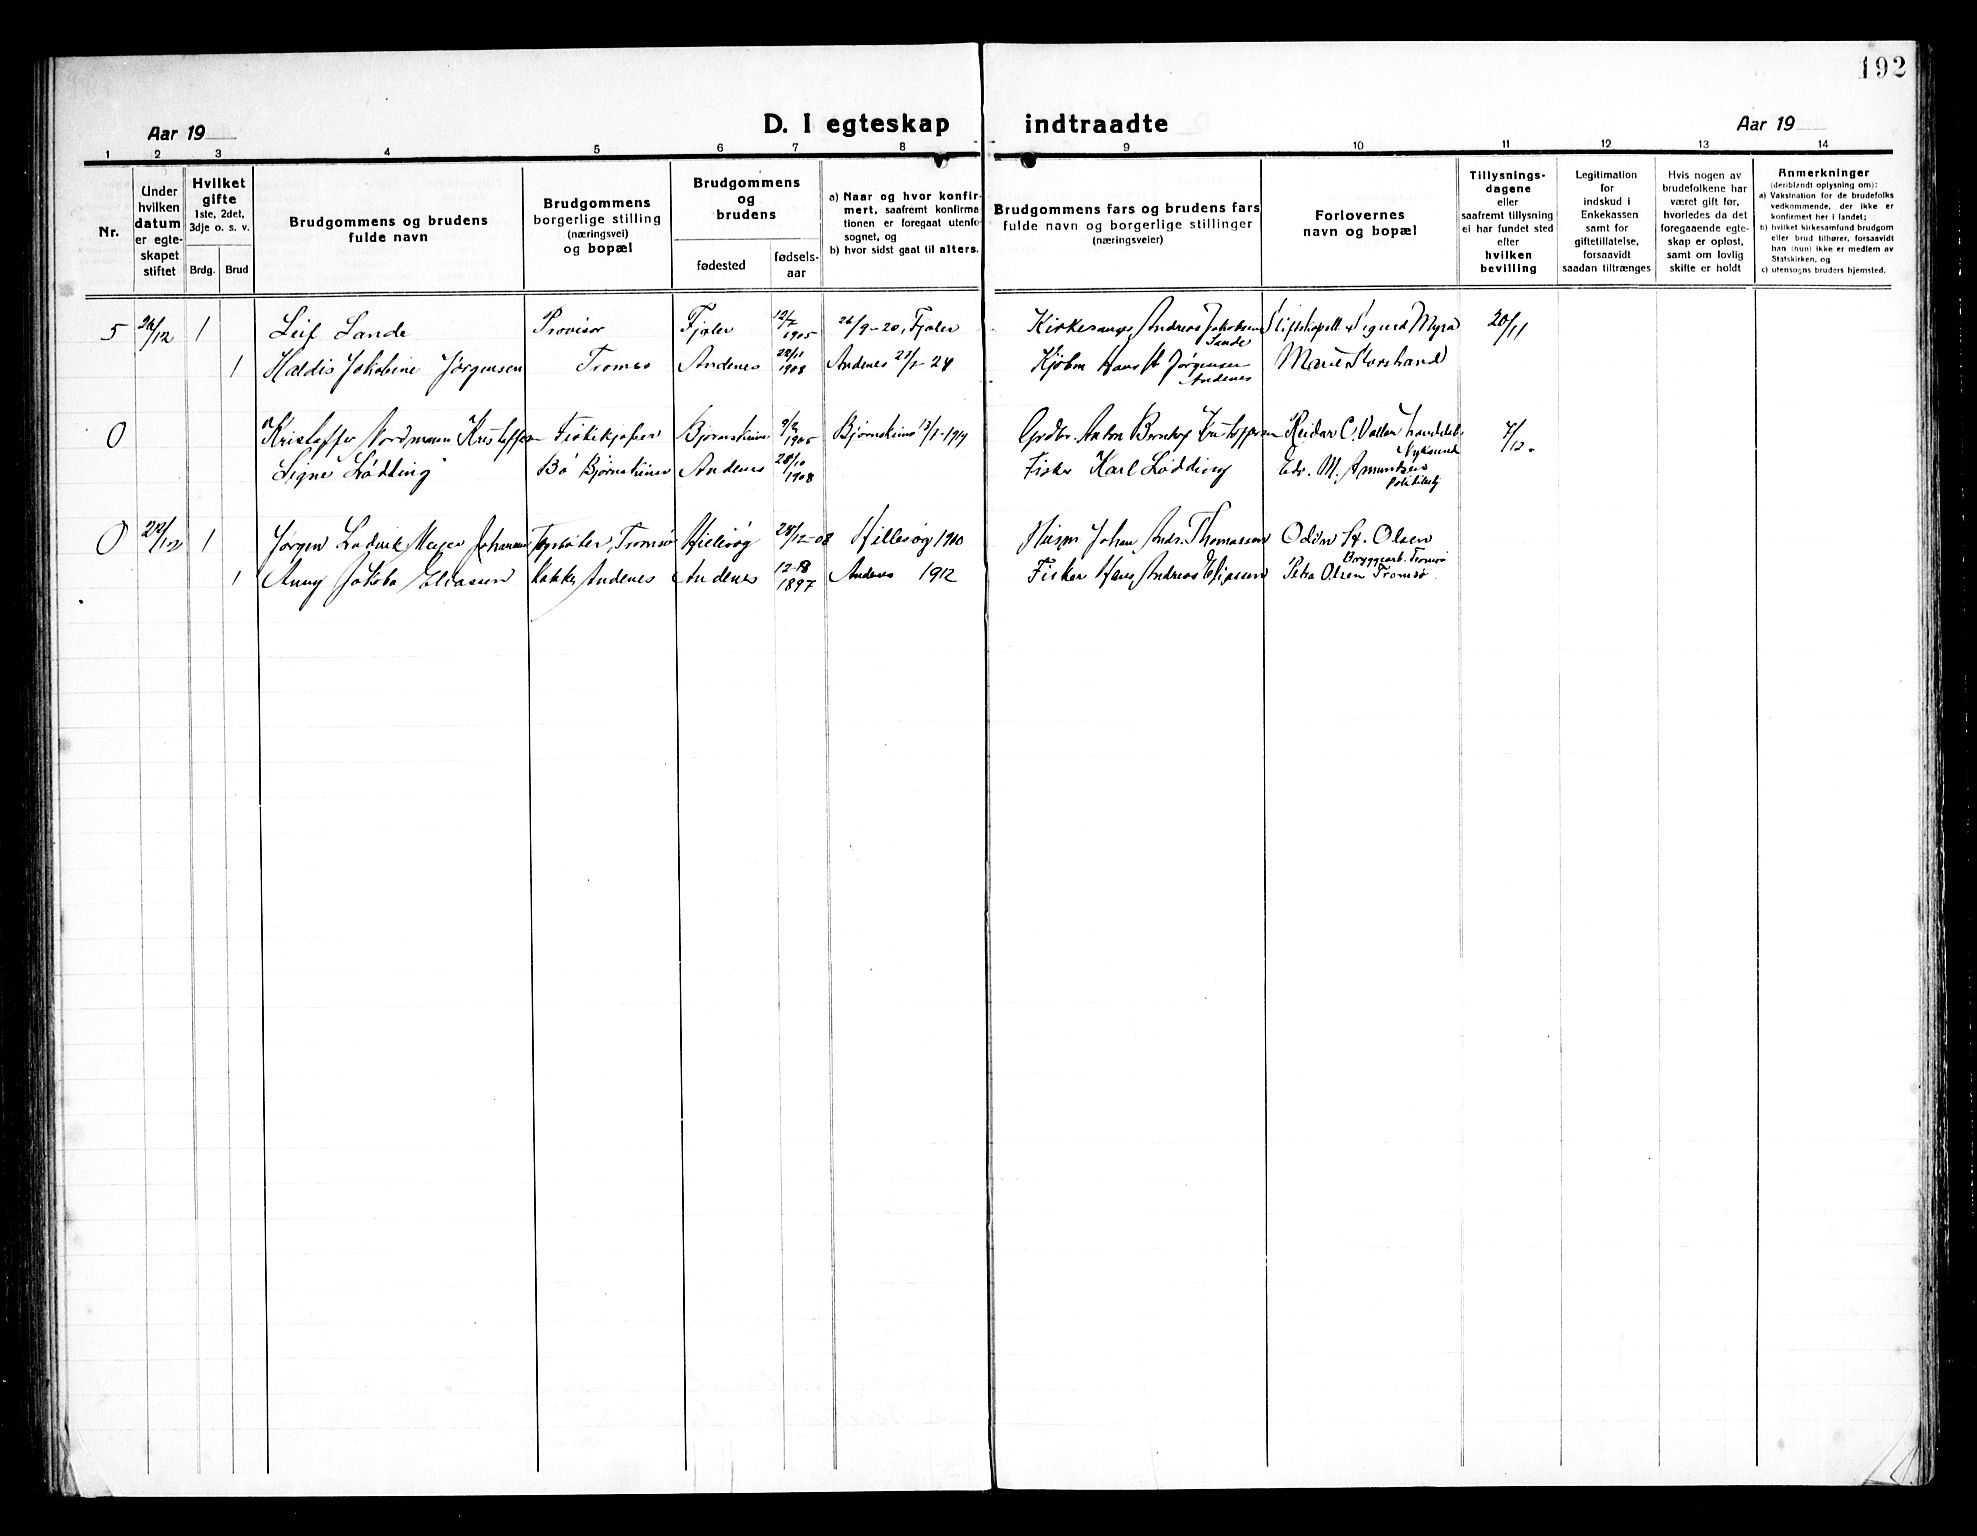 192
Aar 19
D. I egteskap indtraadte
Aar 19
1 2 3 4 5 6 7 8 9 10 11 12 13 14
Nr.
Under
hvilken
datum
er egte-
skapet
stiftet
Hvilket
gifte
1ste, 2det,
3dje o. s. v.
Brdg. Brud
Brudgommens og brudens
fulde navn
Brudgommens
borgerlige stilling
(næringsvei)
og bopæl
Brudgommens
og
brudens
fødested
fødsels-
aar
a) Naar og hvor konfir-
mert, saafremt konfirma-
tionen er foregaat utenfo-
sognet, og
b) hvor sidst gaat til alters.
Brudgommens fars og brudens fars
fulde navn og borgerlige stillinger
(næringsveier)
Forlovernes
navn og bopæl
Tillysnings-
dagene
eller
saafremt tillysning
ei har fundet sted
efter
hvilken
bevilling
Legitimation
for
indskud i
Enkekassen
samt for
giftetillatelse,
forsaavidt
saadan tiltrænges
Hvis nogen av
brudefolkene har
været gift før,
hvorledes da det
foregaaende egte-
skap er opløst,
samt om lovlig
skifte er holdt
Anmerkninger
(deriblandt oplysning om):
a) Vaksination for de brudefolks
vedkommende, der ikke er
konfirmert her i landet;
b) hvilket kirkesamfund brudgom
eller brud tilhører, forsaavidt
han (hun) ikke er medlem av
Statskirken, og
c) utensogns bruders hjemsted.
5 26/12 1 Leif Sande Provisor Fjaler 12/7 1905 26/9-20, Fjaler Kirkesanger Andreas Jakobsen Sande Stiftskapell. Sigurd Myra 20/11
1 Haldis Jakobine Jørgensen Tromsø Andenes 22/11 1908 Andenes 24 Kjøbm Hans Jørgensen Andenes Marie Storstrand
0 Kristoffer Nordmann Kristoffersen Fiskekjøper Bjørnskinn 9/2 1905 Bjørnskinn Grdbr. Anton Kristoffersen Reidar C. Nyksund 7/12.
Signe Lødding Bø Bjørnskinn Andenes 28/10 1908 Fisker Karl Lødding Edv. M. Amundsen
0 1 Jørgen Ludvik Meyer Johansen Tromsø Hillesøy 24/12-08 Hillesøy Johan Andr. Thomassen Odin St. Olsen
Bryggearb. Tromsø
1 Anny Jakoba Eliassen Kokke, Andenes Andenes 1897 Andenes 1912 Fisker Hans Andreas Eliassen Petra Olsen Tromsø.